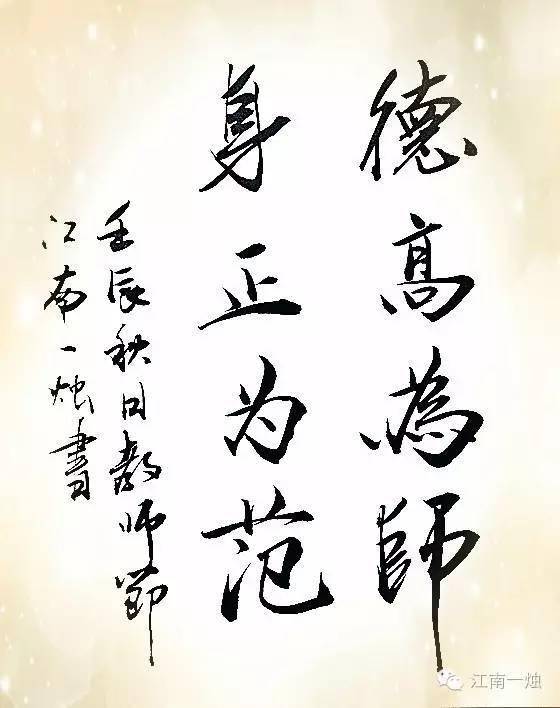 德高為師
身正为范
壬辰秋日教师節
江南一烛書
江南一烛